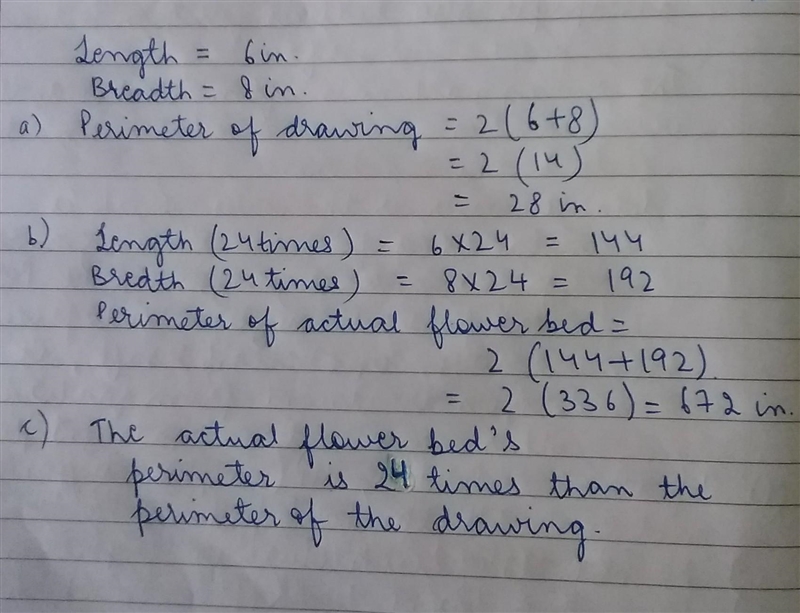 Length = 6in.
Breadth = 8 in.
a) Perimeter of drawing = 2(6+8)
= 2 (14)
= 28 in.
b) Length (24times) = 6×24 = 144
Bredth (24 times) = 8×24 = 192
Perimeter of actual flower bed =
2 (144+192)
= 2 (336) = 672 in.
c) The actual flower bed's
perimeter is 24 times than the
perimeter of the drawing.